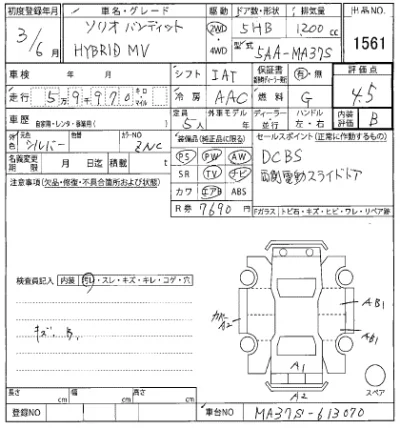 初度登録年月 車名・グレード 駆動 ドア数・形状 排気量 出品NO
3/6月 ソリオ バンディット HYBRID MV 2WD・4WD 5HB 1200cc 1561
型式 5AA-MA37S
車検 年 月 シフト IAT 保証書 有・無 評価点 4.5
走行 5万9千970 キロ・マイル 冷房 AAC 燃料 G
車歴 自家用・レンタ・事業用( ) 定員 5人 外車モデル ディーラー・並行 ハンドル 左・右 内装評価 B
元色 シルバー 色替 カラーNO ZNC
装備品(純正品に限る) セールスポイント(正常に作動するもの)
PS PW AW DCBS
名義変更期限 月 日迄 積載 t SR TV ナビ 両側電動スライドドア
注意事項(欠品・修復・不具合箇所および状態) カワ エアB
R券 7690円 Fガラス トビ石・キズ・ヒビ・ワレ・リペア跡
検査員記入 内装 汚レ・スレ・キズ・キレ・コゲ・穴
A2 AB1
AB1
A1
A2
スペア
長さ cm 幅 cm 高さ cm
登録NO 車台NO MA37S-613070